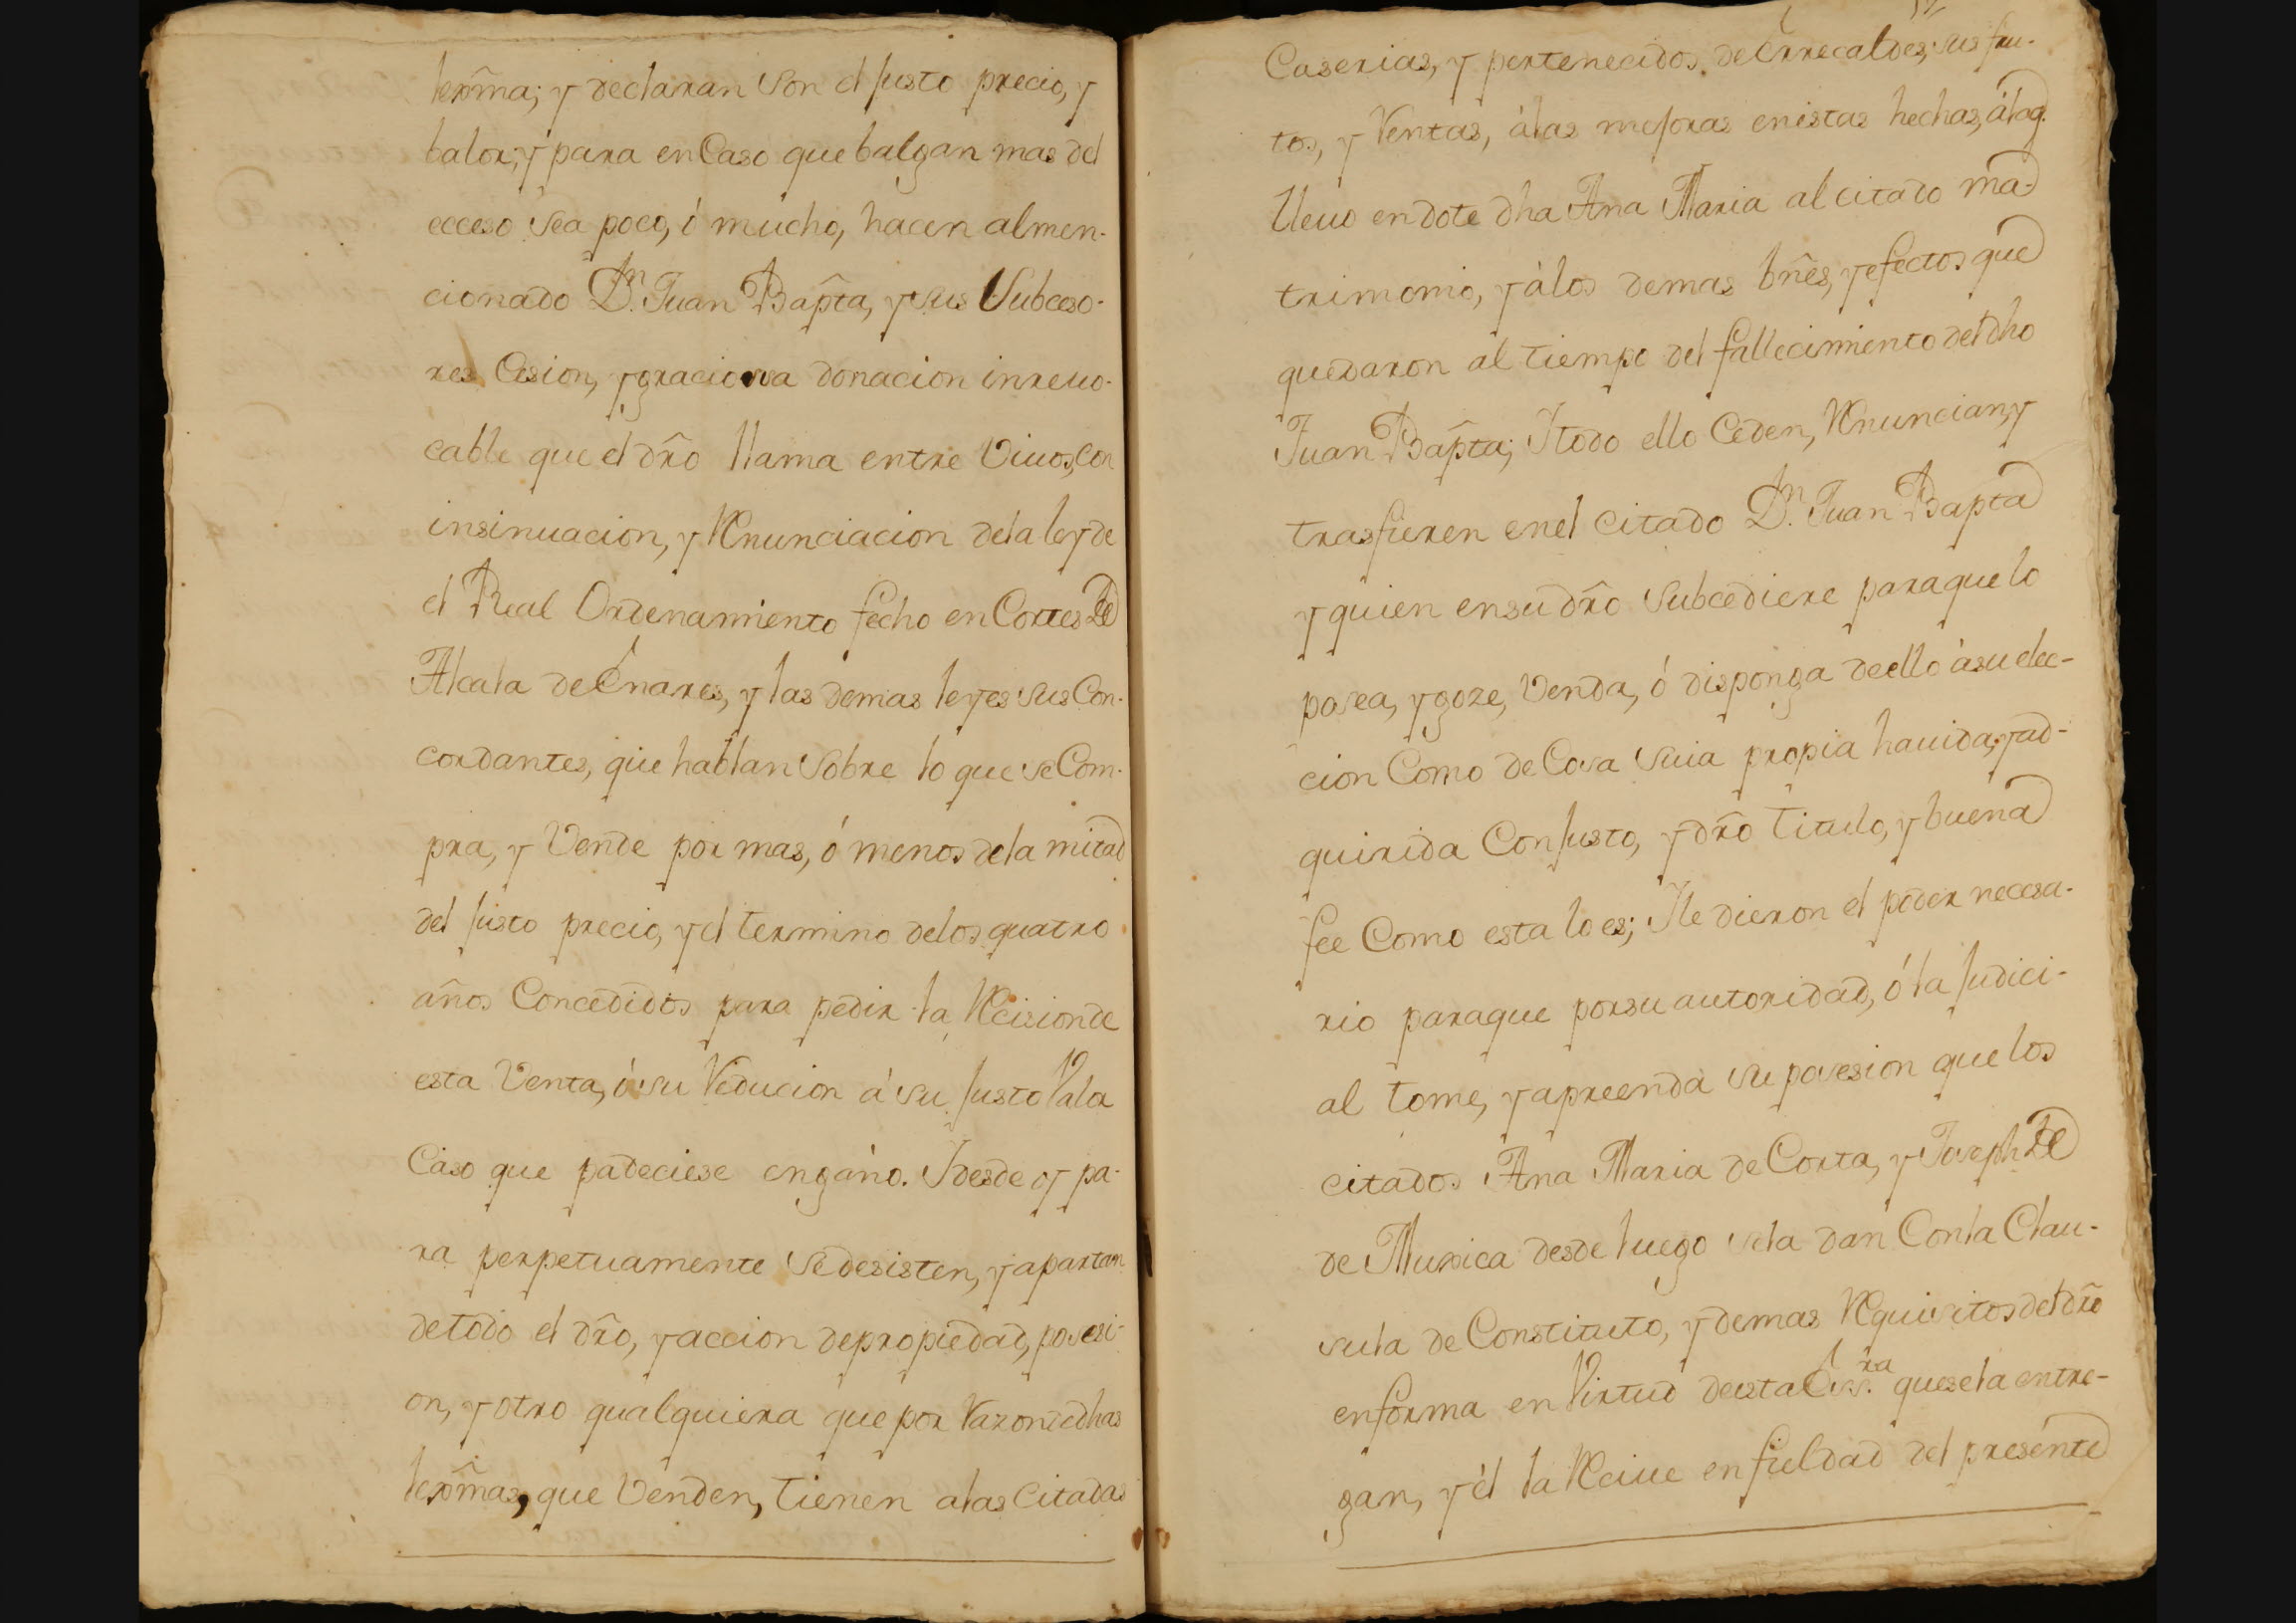 lexма; y declaran son el justo precio, y
balor; y para en Caso que balgan mas del
ecceso sea poco, ó mucho, hacen al men-
cionado Dn. Juan Bapta, y sus Subceso-
res Cesion, y graciosa donacion inrevo-
cable que el dro llama entre Vivos, con
insinuacion, y Renunciacion dela ley de
el Real Ordenamiento fecho en Cortes de
Alcala de Enares, y las demas leyes sus Con-
cordantes, que hablan sobre lo que se Com-
pra, y Vende por mas, ó menos dela mitad
del justo precio, y el termino delos quatro
años Concedidos para pedir la Recision de
esta Venta, ó su Reducion á su justo Valor
Caso que padeciese engaño. Y desde oy pa-
ra perpetuamente se desisten, y apartan
de todo el dro, y accion de propiedad, posesi-
on, y otro qualquiera que por Razon de dhas
lexmas, que Venden, tienen a las Citadas
Caserias, y pertenecidos de Errecaldes, sus fru-
tos, y Rentas, á las mejoras en estas hechas, á la q.
llevo en dote dha Ana Maria al citado ma-
trimonio, y á los demas bnes, y efectos que
quedaron al tiempo del fallecimiento del dho
Juan Bapta; Y todo ello Ceden, Renuncian, y
trasfieren en el Citado Dn. Juan Bapta
y quien en su dro Subcediere para que lo
posea, y goze, Venda, ó disponga de ello á su elec-
cion Como de Cosa suia propia havida, y ad-
quirida Con justo, y dro titulo, y buena
fee Como esta lo es; Y le dieron el poder necesa-
rio para que por su autoridad, ó la Judici-
al tome, y apreenda su posesion que los
citados Ana Maria de Corta, y Joseph de
de Muxica desde luego se la dan Con la Clau-
sula de Constituto, y demas Requisitos del dro
en forma en Virtud de esta Ess.ra que se la entre-
gan, y él la Recive en fieldad del presente